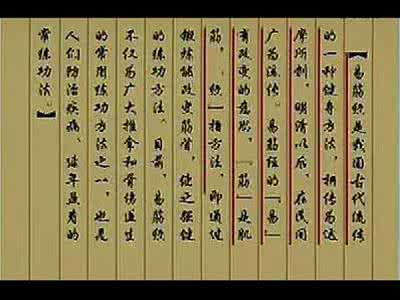 【易筋经是我国古代流传
的一种健身方法，相传为达
摩所创，明清以后，在民间
广为流传。易筋经的「易」
有改变的意思，「筋」是肌
筋，「经」指方法，即通过
锻炼能改变筋骨，使之强健
的练功方法。目前，易筋经
不仅为广大推拿和骨伤医生
的常用练功方法之一，也是
人们防治疾病、延年益寿的
常练功法。】